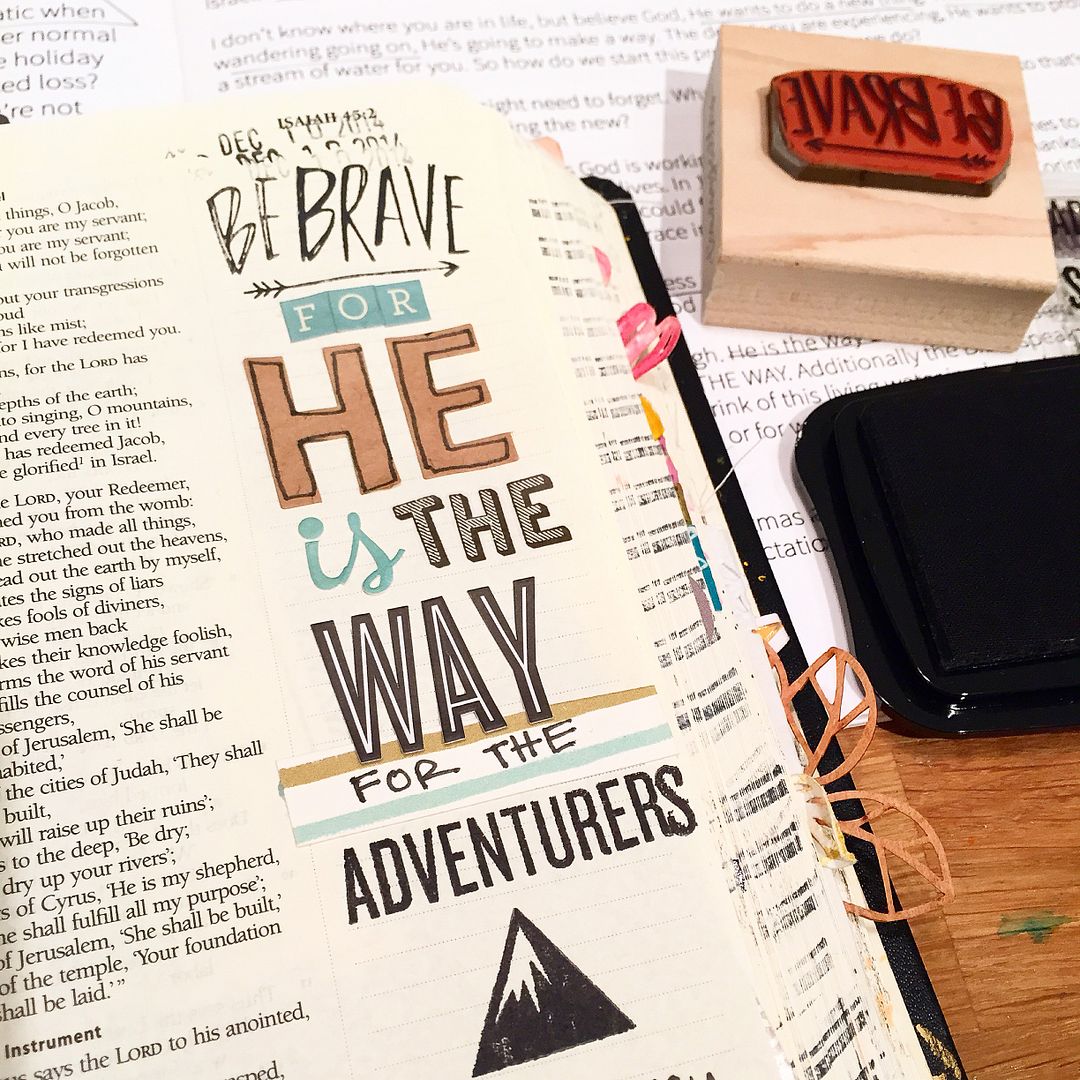 atic when
er normal
e holiday
ed loss?
're not
I don't know where you are in life, but believe God, He wants to do a new
wandering going on, He's going to make a way. The
you are experiencing, He wants to
a stream of water for you. So how do we start this
do?
ight need to forget.
ing the new?
God is working
lives. In
could
race in
ess
od
gh. He is the way
THE WAY. Additionally the
rink of this living
or for
mas
ctatio
BE BRAVE
ISAIAH 45:2
DEC 18 2014
BE BRAVE
FOR
HE
is THE
WAY
FOR THE
ADVENTURERS
things, O Jacob,
you are my servant;
ou are my servant;
will not be forgotten
out your transgressions
oud
ns like mist;
for I have redeemed you.
ns, for the LORD has
epths of the earth;
to singing, O mountains,
nd every tree in it!
has redeemed Jacob,
e glorified¹ in Israel.
e LORD, your Redeemer,
ned you from the womb:
RD, who made all things,
ne stretched out the heavens,
ead out the earth by myself,
ates the signs of liars
kes fools of diviners,
wise men back
kes their knowledge foolish,
rms the word of his servant
fills the counsel of his
ssengers,
of Jerusalem, ‘She shall be
habited,’
the cities of Judah, ‘They shall
built,
will raise up their ruins’;
s to the deep, ‘Be dry;
dry up your rivers’;
s of Cyrus, ‘He is my shepherd,
he shall fulfill all my purpose’;
of Jerusalem, ‘She shall be built,’
of the temple, ‘Your foundation
shall be laid.’”
Instrument
us says the LORD to his anointed,